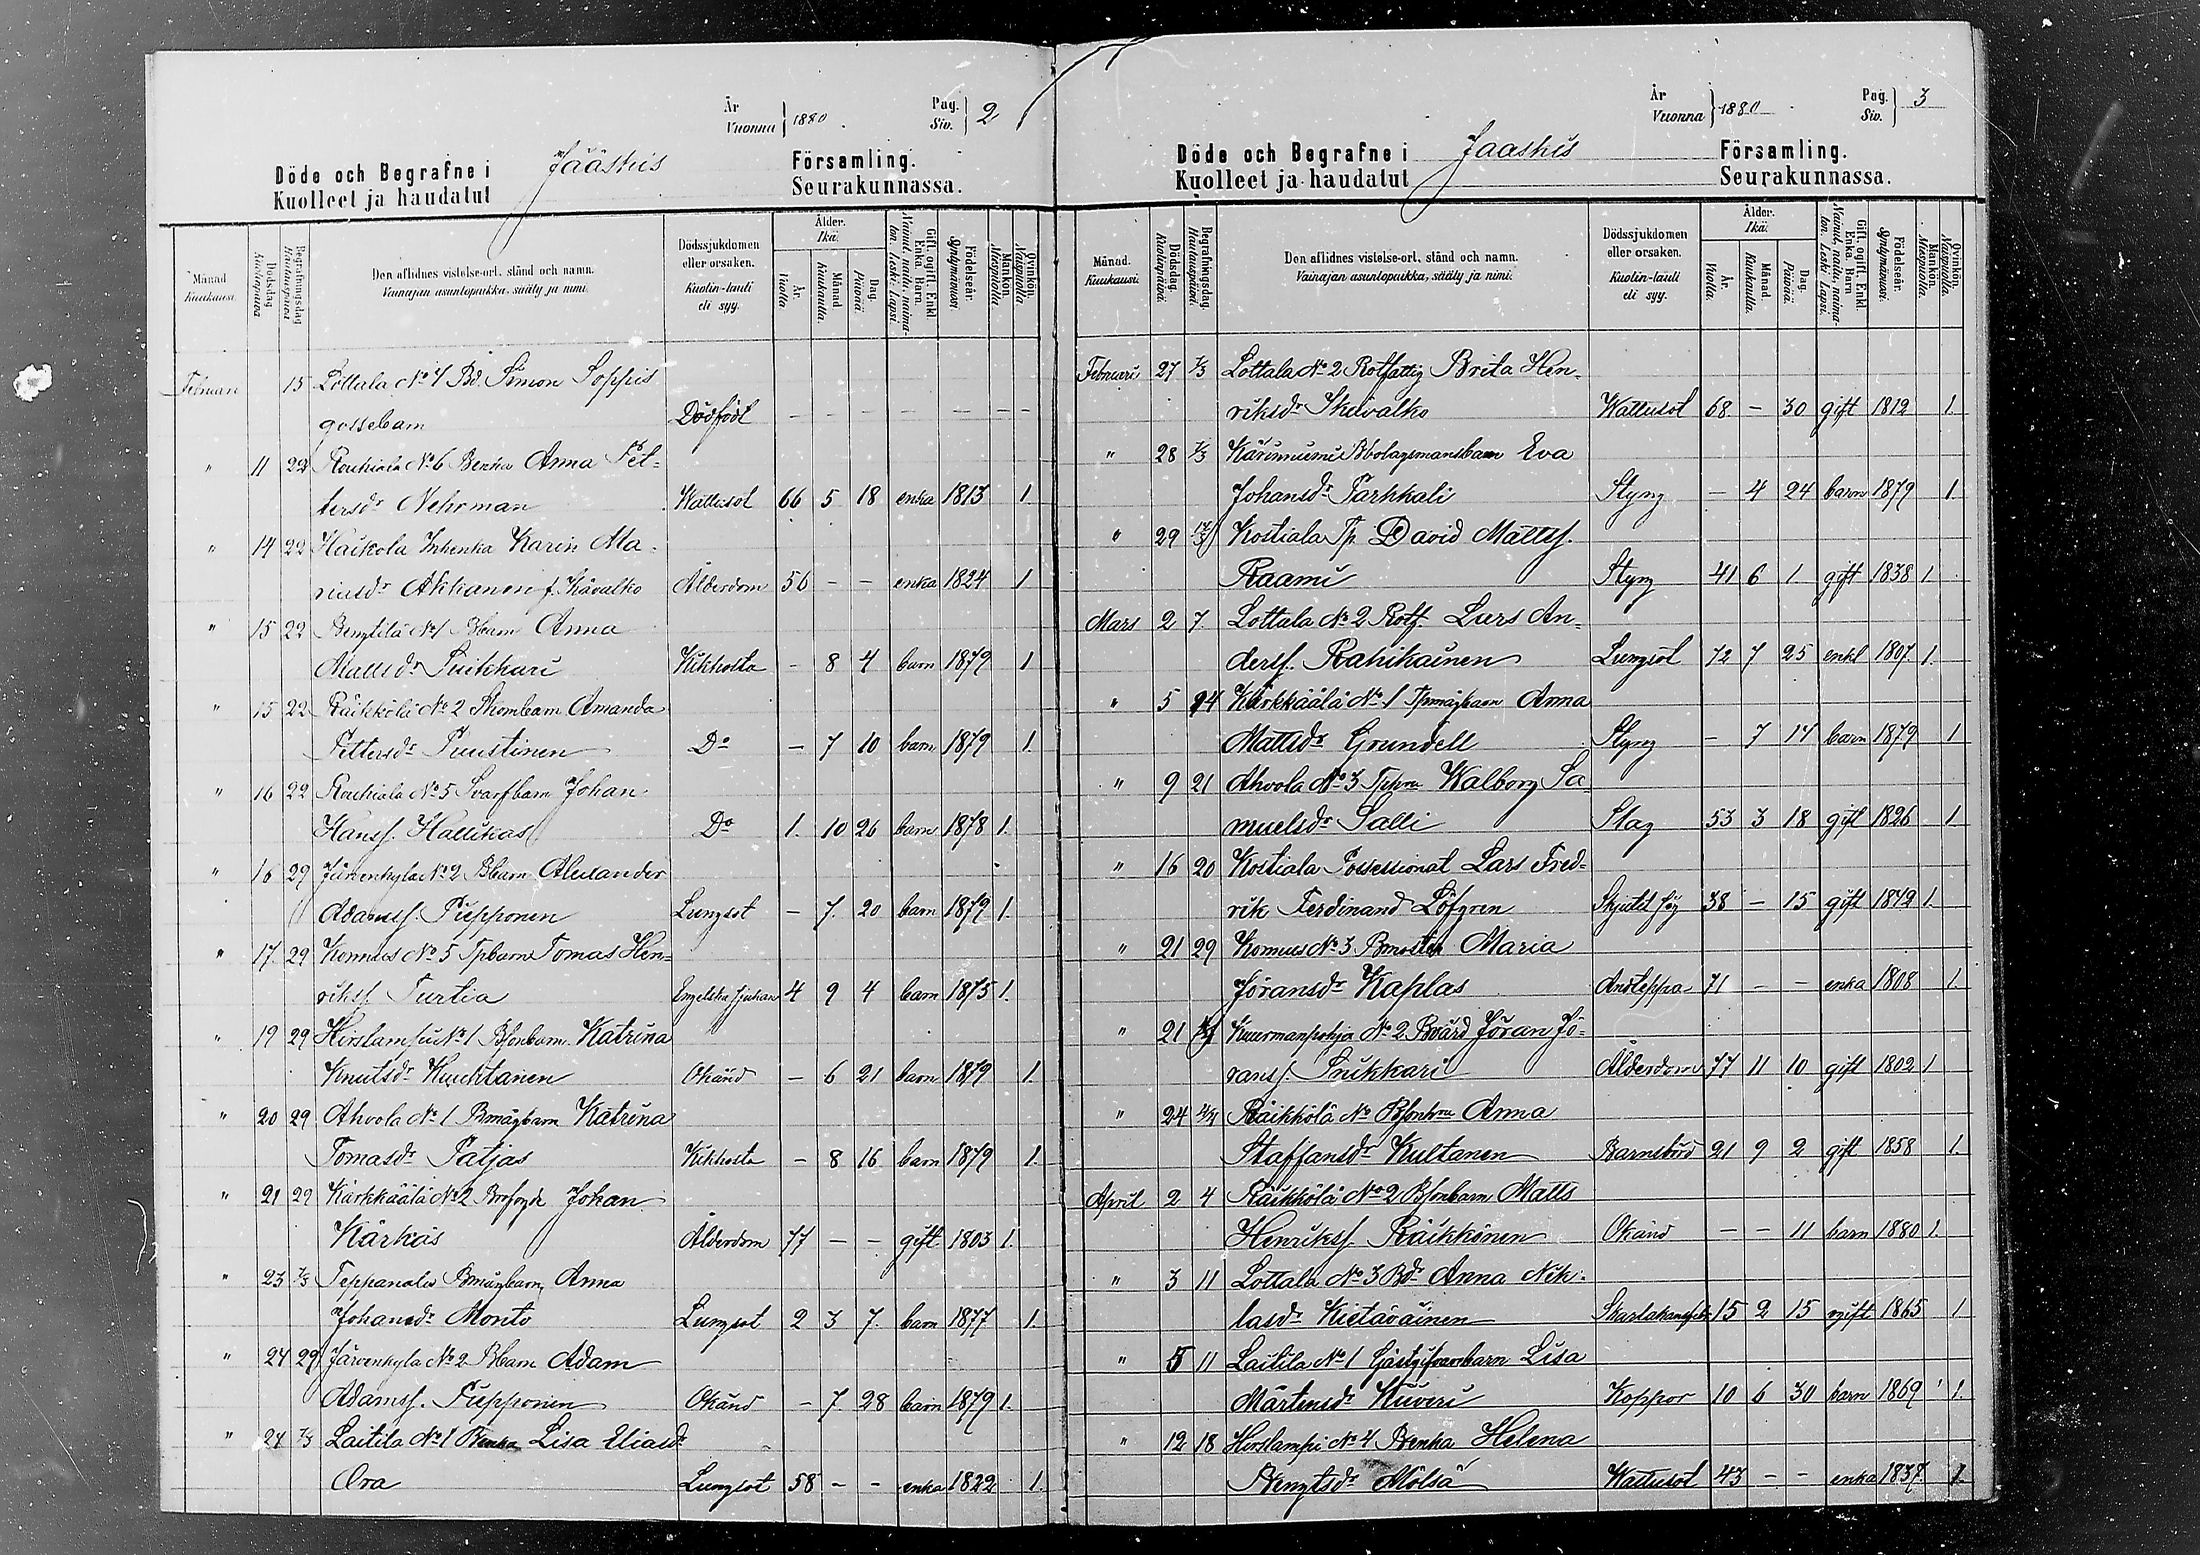 År
Vuonna } 1880.
Pag.
Siv. } 2
Döde och Begrafne i
Kuolleet ja haudatut
Jääskis
Församling.
Seurakunnassa.
Månad. Kuukausi.
Dödsdag Kuolinpäivä
Begrafningsdag Hautauspäivä
Den aflidnes vistelse-ort, stånd och namn.
Vainajan asuntopaikka, sääty ja nimi.
Dödssjukdomen eller orsaken.
Kuolin-tauti eli syy.
Ålder. Ikä.
År. Vuotta
Månad Kuukautta.
Dag. Päivää
Gift, ogift, Enkl. Enka, Barn. Nainut, naitu, naimaton, Leski, Lapsi.
Födelseår. Syntymävuosi.
Mankön. Miespuolia.
Qvinkön. Naispuolia
Februari 15 Lottala No 4 Bd. Simon Soppis
gossebarn Dödfödt – – – – – –
" 11 22 Rouhiala No 6 Benka Anna Pet-
tersdr Nehrman Wattusot 66 5 18 enka 1813 1
" 14 22 Haikola Inhenka Karin Ma-
riusdr Akkanen f. Kävalko Ålderdom 56 – – enka 1824 1
" 15 22 Bengtilä No 1 Bbarn Anna
Mattsdr Puikkari Kikhosta – 8 4 barn 1879 1
" 15 22 Räikkölä No 2 Skombarn Amanda
Pettersdr Puustinen Do – 7 10 barn 1879 1.
" 16 22 Rouhiala No 5 Svarfbarn Johan
Hansf. Hallikas Do 1. 10 26 barn 1878 1.
" 16 29 Järvenkylä No 2 Bbarn Alexander
Adamsf. Piipponen Lungsot – 7. 20 barn 1879 1.
" 17. 29 Konnus No 5 Tpbarn Tomas Hen-
riksf Turtia Engelska sjukan 4 9 4 barn 1875 1.
" 19 29 Hirslampi No 1 Bsonbarn Katrina
Knutsdr Kuuktanen Okänd – 6 21 barn 1879 1.
" 20 29 Ahvola No 1 Bmågbarn Katrina
Tomasdr Patjas Kikhosta – 8 16 barn 1879 1.
" 21 29 Kärkkäälä No 2 Brofogde Johan
Kärkäs Ålderdom 77 – – gift 1803 1.
" 23 7/3 Teppanala Bmågbarn Anna
Johansdr Monto Lungsot 2 3 7. barn 1877 1.
" 24 29 Järvenkylä No 2 Bbarn Adam
Adamsf. Piipponen Okänd – 7 28 barn 1879 1.
" 24 7/3 Laitila No 1 Benka Lisa Eliasdr
Ora Lungsot 58 – – enka 1822 1.
År
Vuonna } 1880
Pag.
Siv. } 3
Döde och Begrafne i
Kuolleet ja haudatut
Jaaskis
Församling.
Seurakunnassa.
Månad. Kuukausi.
Dödsdag Kuolinpäivä.
Begrafningsdag. Hautauspäivä.
Den aflidnes vistelse-ort, stånd och namn.
Vainajan asuntopaikka, sääty ja nimi.
Dödssjukdomen eller orsaken.
Kuolin-tauti eli syy.
Ålder. Ikä.
År Vuotta.
Månad. Kuukautta.
Dag. Päivää.
Gift, ogift, Enkl. Enka, Barn Nainut, naitu, naimaton, Leski Lapsi.
Födelseår. Syntymävuosi.
Mankön. Miespuolia.
Qvinkön. Naispuolia.
Februari 27 7/3 Lottala No 2 Rotfattig Brita Hen-
riksdr Skäivalko Wattusot 68 – 30 gift 1812 1.
" 28 7/3 Kärinniemi Bbolagsmansbarn Eva
Johansdr Parkkali Styng – 4 24 barn 1879 1.
" 29 Kostiala Tp David Mattsf.
Raami Styng 41 6 1 gift 1838 1
Mars 2 7 Lottala No 2 Rotf Lars An-
dersf. Rahikainen Lungsot 72 7 25 enkl 1807. 1.
" 5 14 Kärkkäälä No 1 Tpmågbarn Anna
Mattsdr Grundell Styng – 7 17 barn 1879 1
" 9 21 Ahvola No 3 Tphu Walborg Sa-
muelsdr Salli Slag 53 3 18 gift 1826 1.
" 16 20 Kostiala Possessionat Lars Fred-
rik Ferdinand Löfgren Skjutit sig 38 – 15 gift 1842 1.
" 21 29 Konnus No 3 Bmoster Maria
Jöransdr Kaplas Andteppa 71 – – enka 1808 1.
" 21 Kuurmanpohja No 2 Bvärd Jöran Jö-
ransf. Puikkari Ålderdom 77 11 10 gift 1802 1
" 24 4/4 Räikkölä No Bsonhu Anna
Staffansdr Kultanen Barnsbörd 21 9 2 gift 1858 1.
April 2 4 Räikkölä No 2 Bsonbarn Matts
Henriksf. Räikkönen Okänd – – 11 barn 1880 1.
" 3 11 Lottala No 3 Bdr Anna Nik-
lasdr Kietäväinen 15 2 15 ogift 1865 1
" 5 11 Laitila No 1 Gästgifvarebarn Lisa
Mårtensdr Kiiveri Koppor 10 6 30 barn 1869 1.
" 12 18 Hirslampi No 4 Benka Helena
Bengtsdr Mölsä Wattusot 43 – – enka 1837. 1.